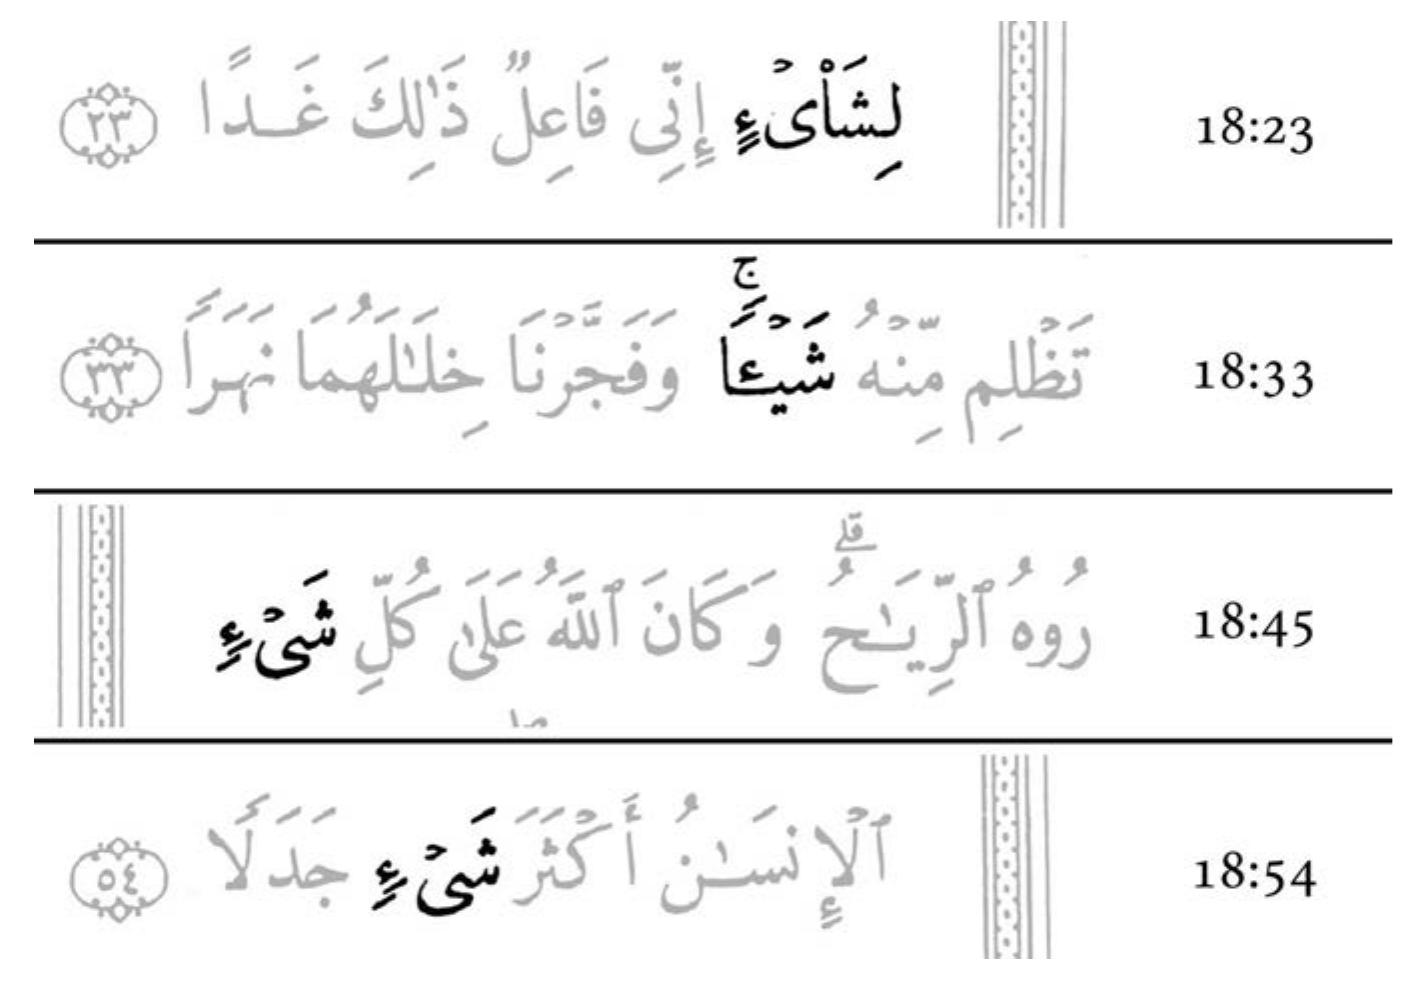 18:23 لِشَا۟ىۡءٍ إِنِّي فَاعِلٌ ذَٰلِكَ غَدًا ٢٣
18:33 تَظۡلِم مِّنۡهُ شَيۡـًٔاۚ وَفَجَّرۡنَا خِلَٰلَهُمَا نَهَرًا ٣٣
18:45 رُوهُ ٱلرِّيَٰحُۗ وَكَانَ ٱللَّهُ عَلَىٰ كُلِّ شَيۡءٍ
18:54 ٱلۡإِنسَٰنُ أَكۡثَرَ شَيۡءٍ جَدَلًا ٥٤